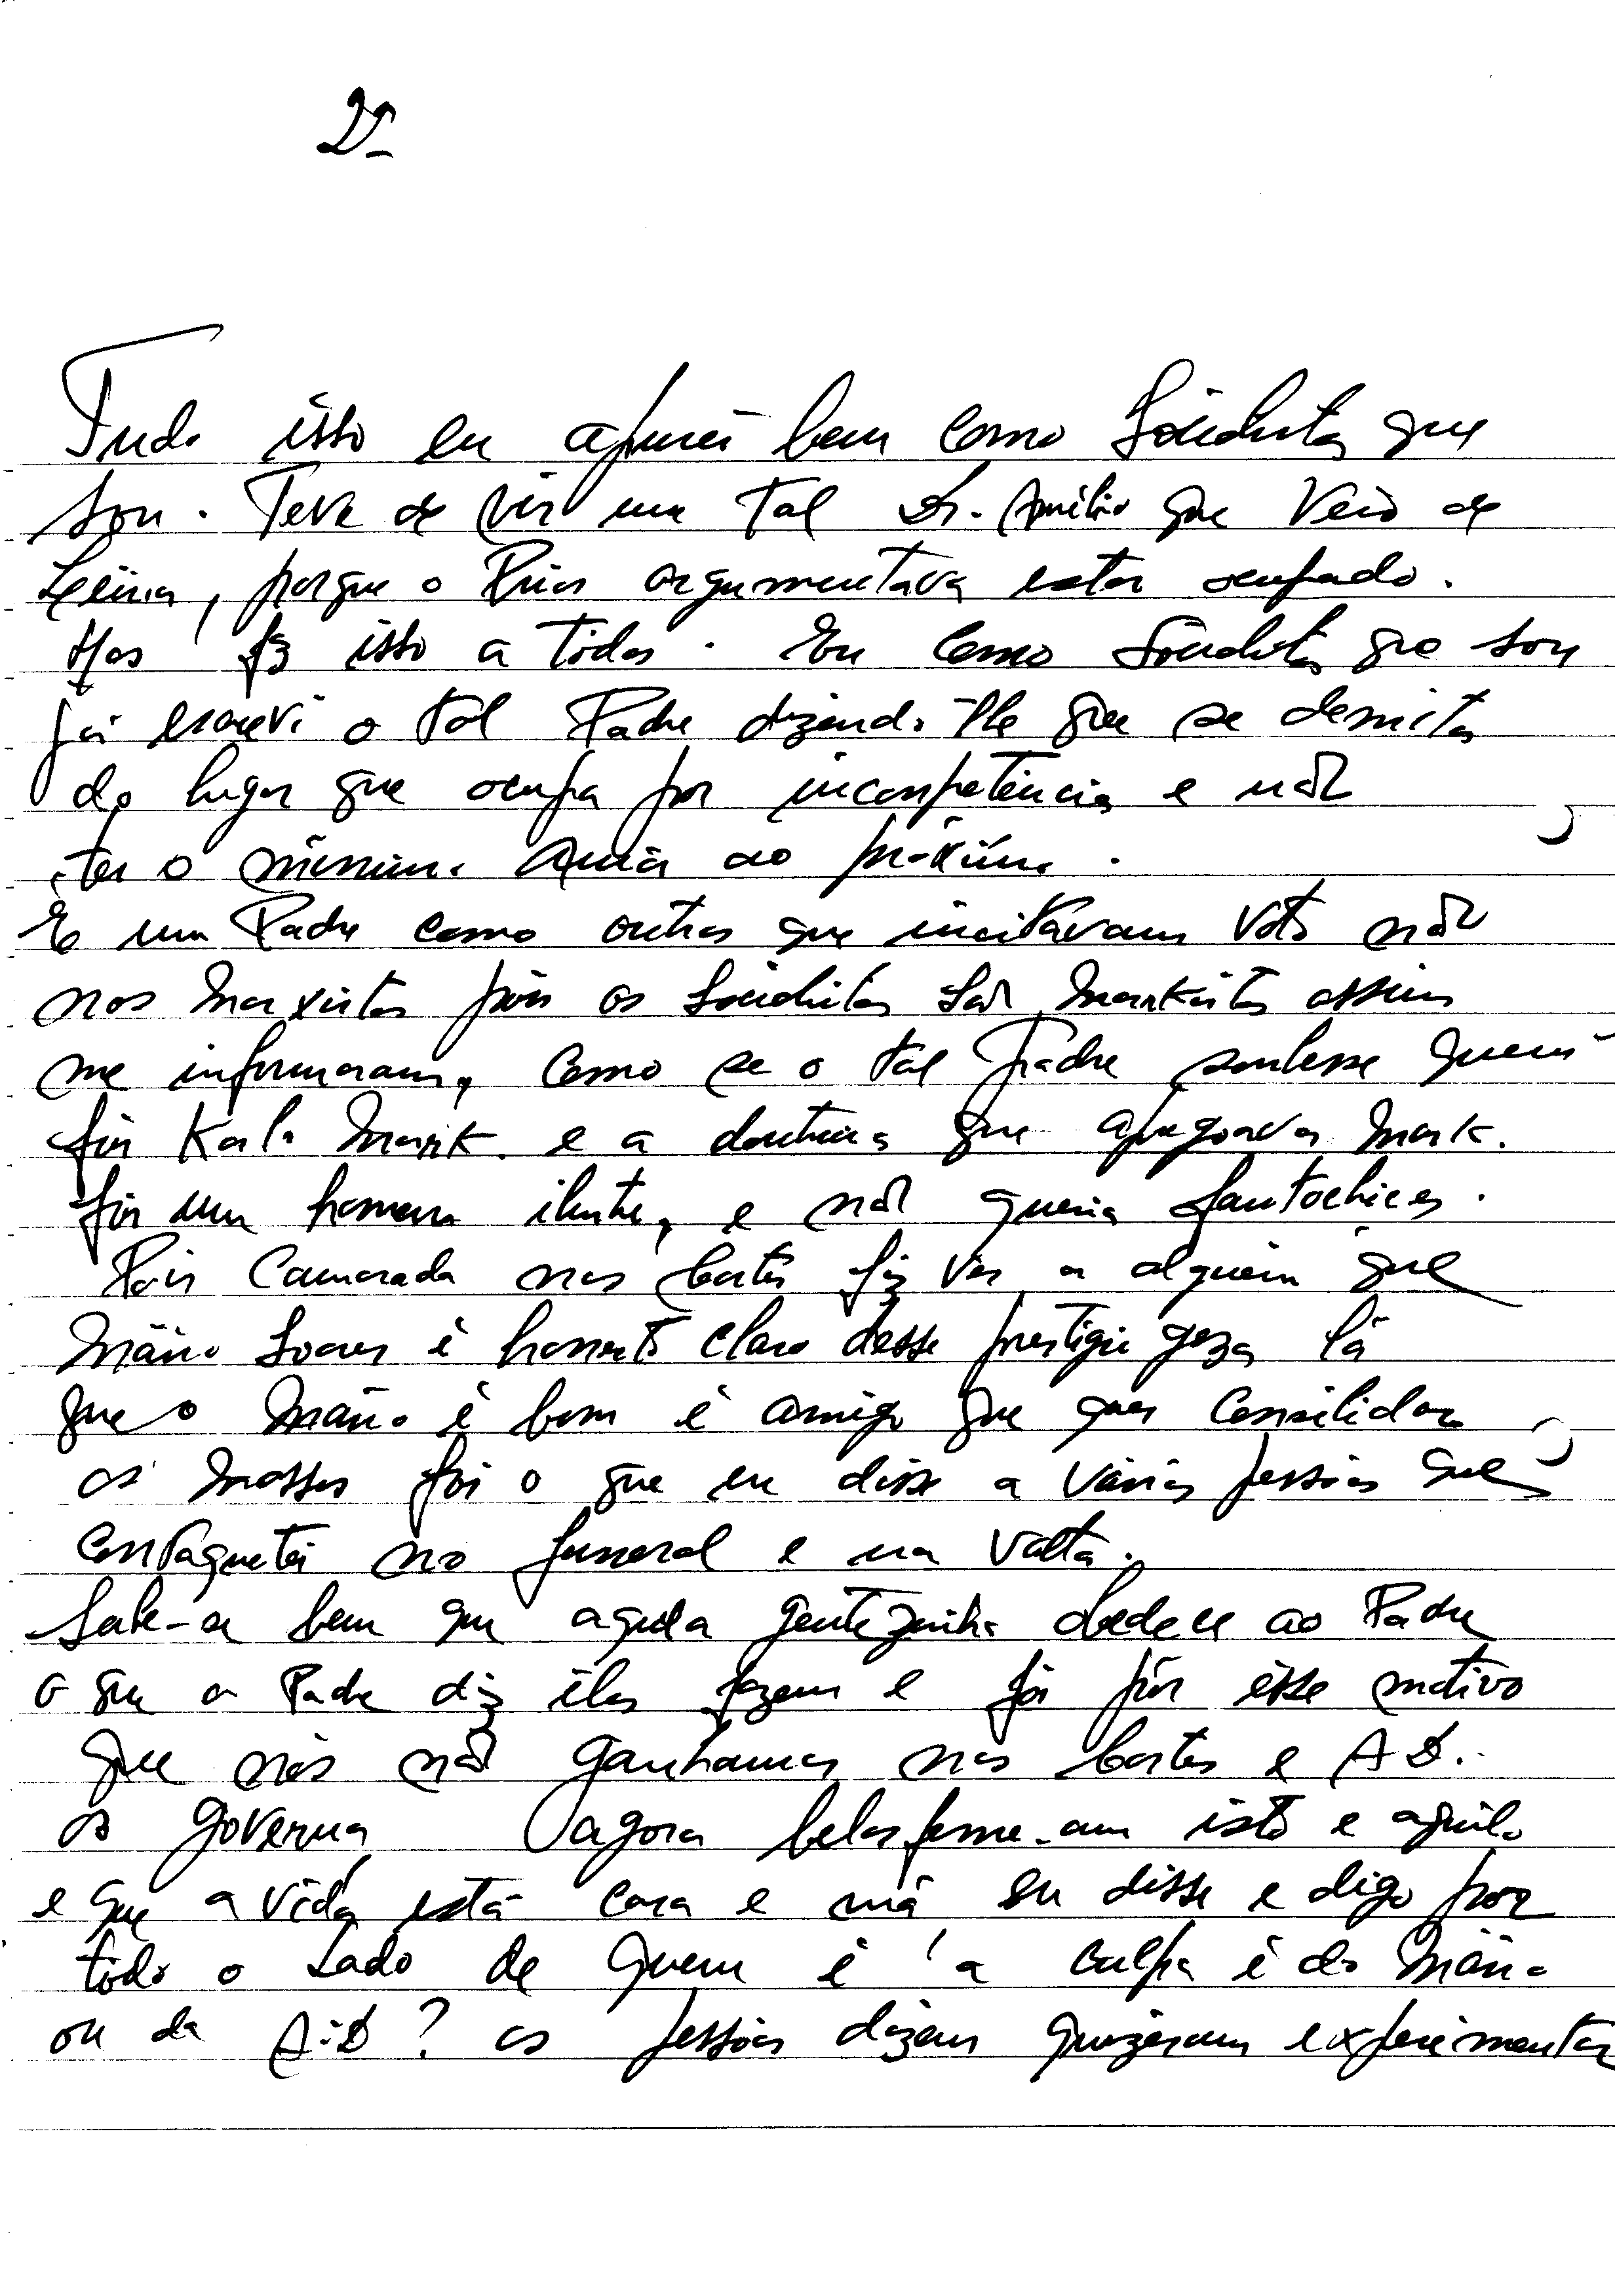 2º
Tudo isso eu apurei bem como Socialista que
sou. Teve de vir um tal Dr. Amílcar que veio de
Leiria, porque o Prior argumentava estar ocupado.
Mas fez isso a todos. Eu como Socialista que sou
já escrevi o tal Padre dizendo-lhe que se demita
do lugar que ocupa por incompetência e não
ter o mínimo amor ao próximo.
E um Padre como outros que incitavam voto não
nos Marxistas pois os Socialistas são Markistas assim
me informaram, como se o tal Padre soubesse quem
foi Karlo Mark. e a doutrina que apregoava Mark.
foi um homem ilustre, e não queria fantochices.
Pois Camarada nas Cortes fiz ver a alguém que
Mário Soares é honesto claro desse prestigio goza lá
que o Mário é bom é amigo que quer consilidar
as massas foi o que eu disse a várias pessoas que
contaquetei no funeral e na volta.
Sabe-se bem que aquela gentezinha obedece ao Padre
o que o Padre diz êles fazem e foi pôr êsse motivo
que nós não ganhamos nas Cortes e A D.
os governa agora belasfeme-am isto e aquilo
e que a vida está cara e má eu disse e digo por
todo o lado de quem é a culpa é do Mário
ou da A.D? as pessoas dizem quizeram experimentar